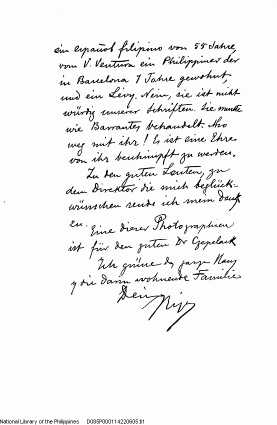 ein español filipino von 55 Jahre,
von V. Ventura ein Philippiner der
in Barcelona 7 Jahre gewohnt,
und ein Levy. Nein, sie ist nicht
würdig unserer Schriften. Sie musste
wie Barrantes behandelt. Also
weg mit ihr! Es ist eine Ehre
von ihr beschimpft zu werden.
Zu den guten Leuten, zu
dem Direktor die mich beglück-
wünschen sende ich mein Dank
Eine dieser Photographien
ist für den guten Dr
Ich grüne das ganze Haus
y die darin wohnende Familie
Dein
National Library of the Philippines D005P000114220605.tif